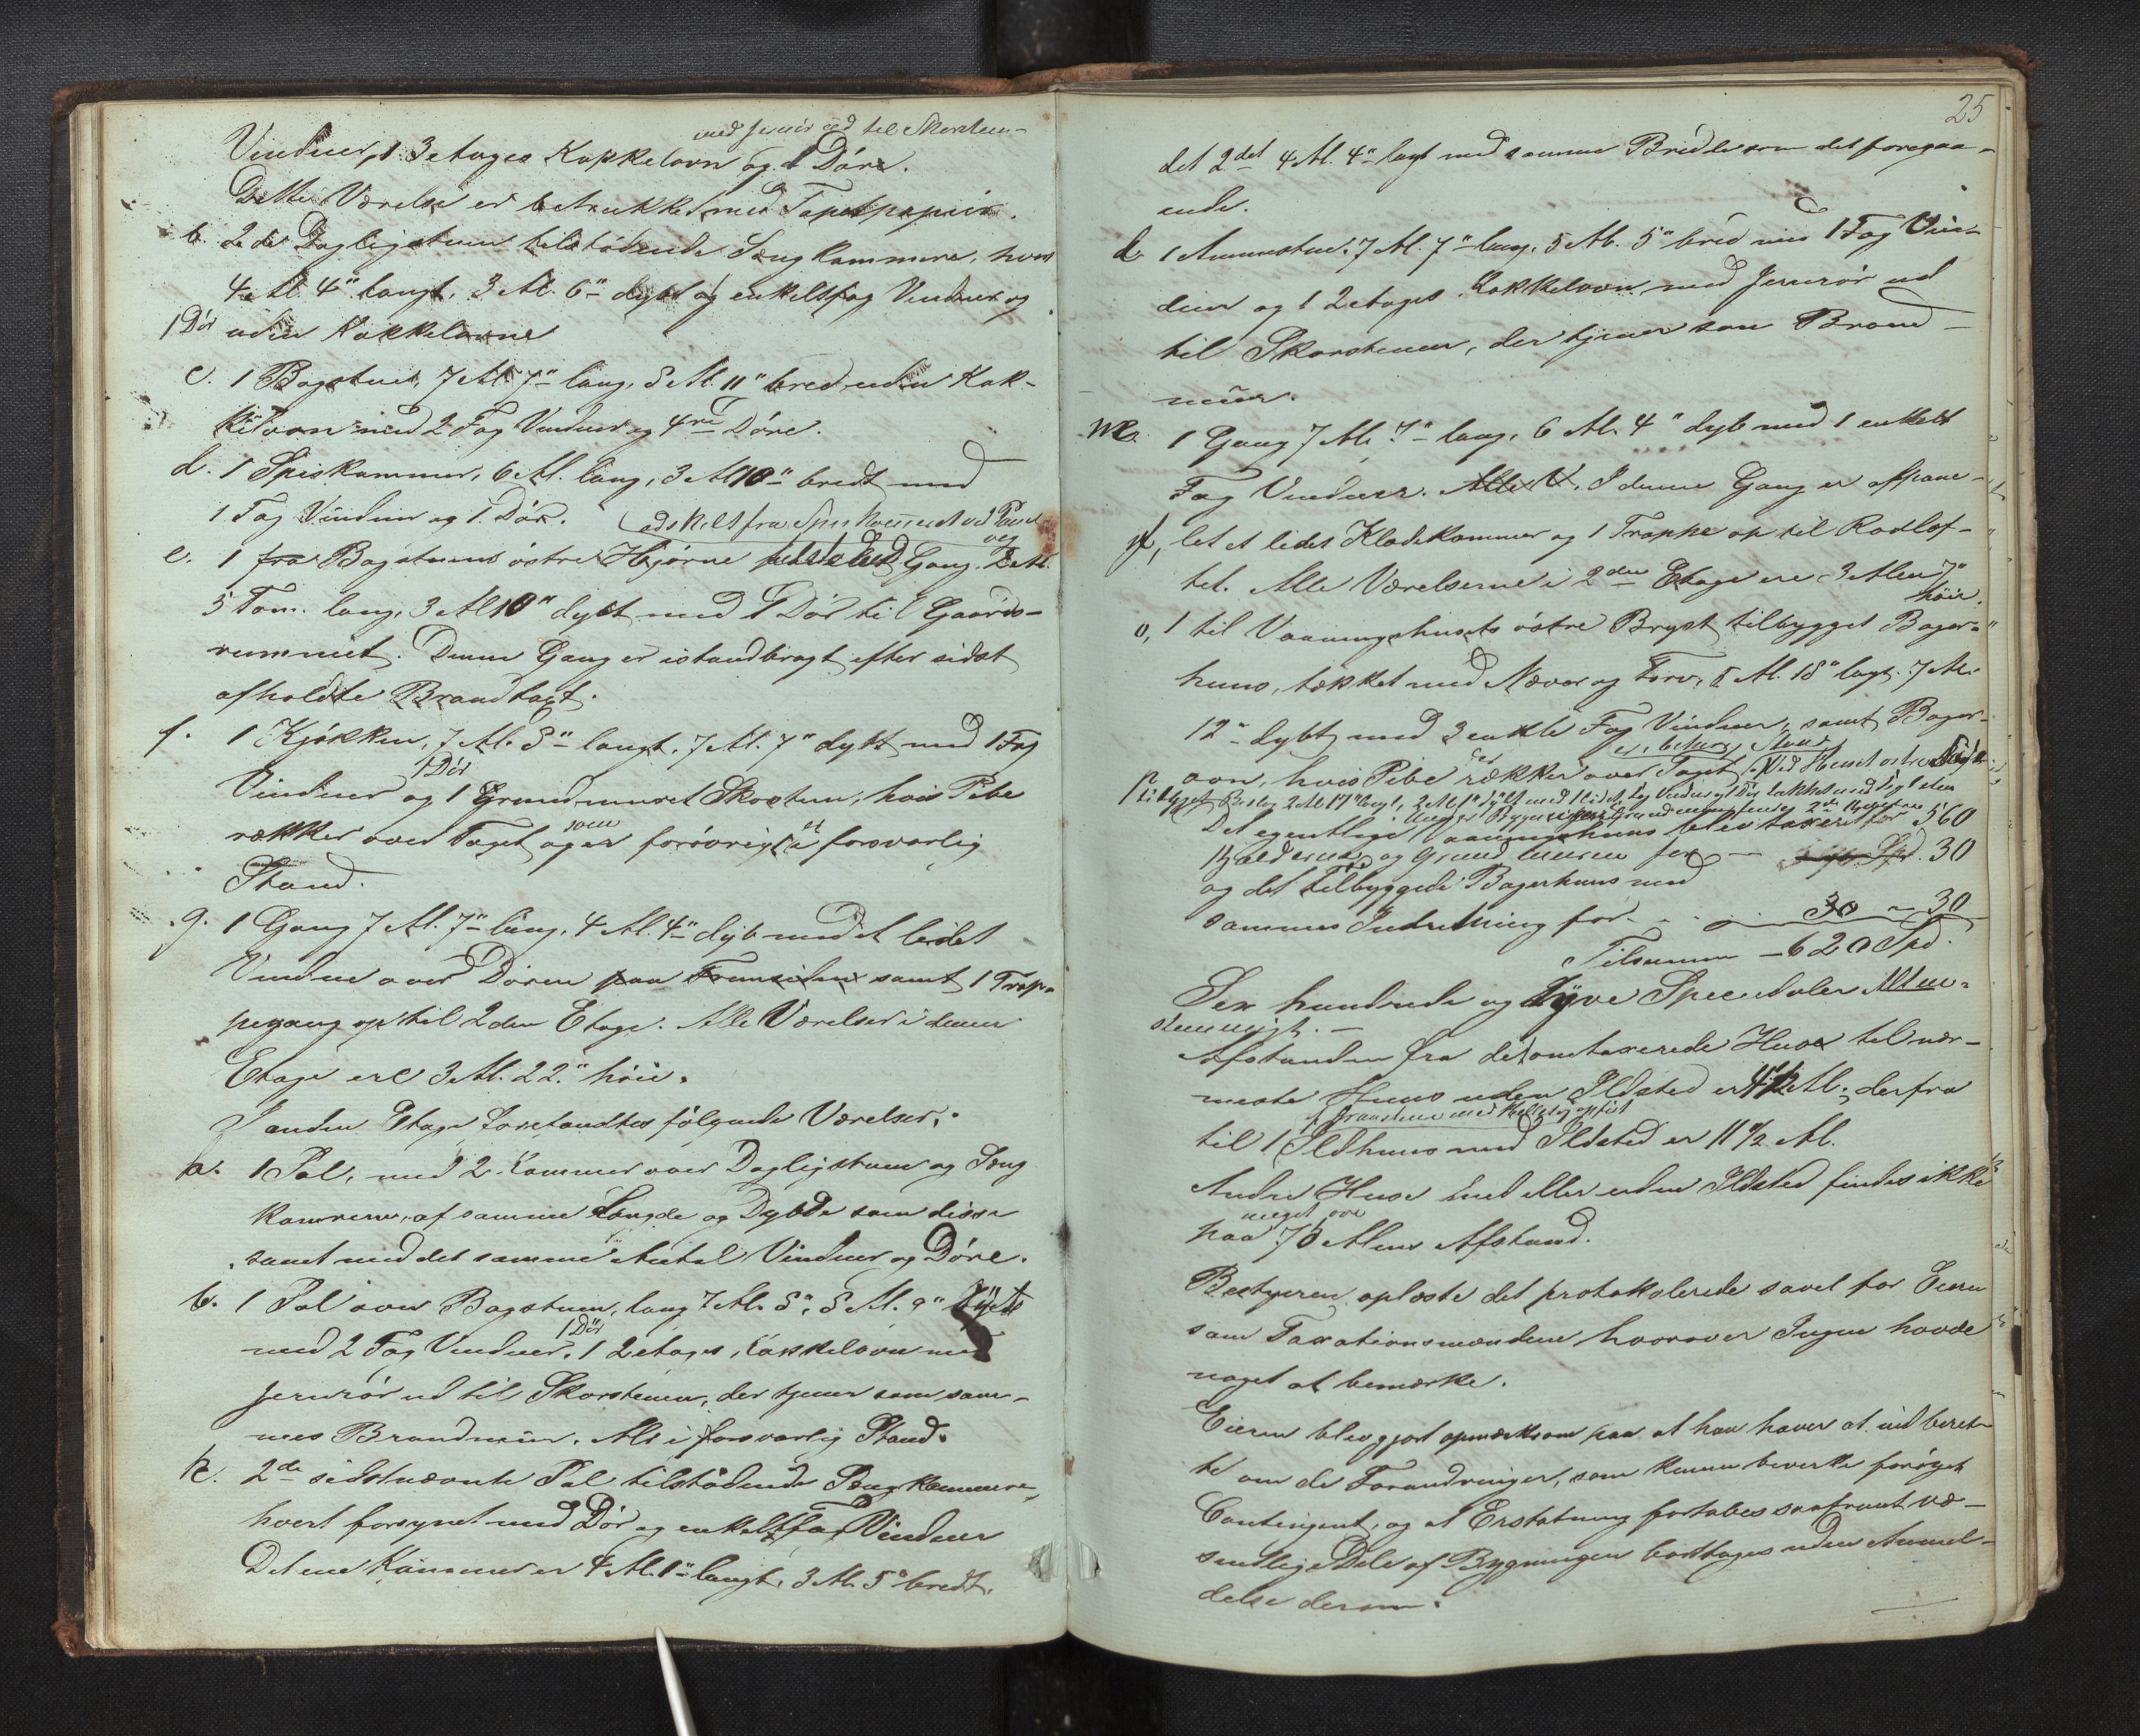 med Jernrör ud til Skorsten-
Vinduer, 1 3 etages Kakkelovn og 1 Döre.
Dette Værelse er betrukket med Tapetpapir.
b. 2de Dagligstuen tilstödende Sengkammere, hvert
4 Al. 4" langt, 3 Al. 6" dybt og enkelt fag Vinduer og
1 Dör uden Kakkelovne
c. 1 Bagstue, 7 Al. 7" lang, 5 Al. 11" bred, uden Kak-
kelovn med 2 Fag Vinduer og 4re Döre.
d. 1 Spiskammer, 6 Al. lang, 3 Al 10" bredt med
1 Fag Vinduer og 1 Dör. adskilt fra Spiskammeret ved Panel-
væg
e. 1 fra Bagstuens östre Hjörne tilstödende Gang. 2 Al.
5 Tom. lang, 3 Al 10" dybt med 1 Dör til Gaards-
rummet. Denne Gang er istandbragt efter sidst
afholdte Brandtaxt.
f. 1 Kjökken, 7 Al. 5" langt, 7 Al. 7" dybt med 1 Fag
1 Dör
Vinduer og 1 Grundmuret Skorsten, hvis Pibe
rækker over Taget og er forövrigt i forsvarlig
Stand.
g. 1 Gang 7 Al. 7" lang, 4 Al. 4" dyb med et lidet
Vindue over Dören paa Framsiden samt 1 Trap-
pegang op til 2den Etage. Alle Værelser i denne
Etage ere 3 Al. 22" höie.
I anden Etage forefandtes fölgende Værelser:
a. 1 Sal, med 2 Kammer over Dagligstuen og Seng
kamrene, af samme Længde og Dybde som disse
samt med det samme Antal Vinduer og Döre.
b. 1 Sal over Bagstuen, lang 7 Al. 5", 5 Al. 9" dybt
1 Dör
med 2 Fag Vinduer, 1 2 etages Kakkelovn med
Jernrör ud til Skorstenen, der tjener som sam-
mes Brandmur. Alt i forsvarlig Stand.
k. 2de sidstnævnte Sal tilstödende Sengkammere,
hvert forsynet med Dör og enkelt fag Vinduer
Det ene Kammer er 4 Al. 1" langt, 3 Al. 5" bredt,
25
det 2det 4 Al. 4" langt med samme Bredde som det foregaa-
ende.
l. 1 Ammestue, 7 Al. 7" lang, 5 Al. 5" bred med 1 Fag Vin-
duer og 1 2 etages Kakkelovn med Jernrör ud
til Skorstenen, der tjener som Brand-
mur.
m. 1 Gang 7 Al. 7" lang, 6 Al. 4" dyb med 1 enkelt
Fag Vinduer. Alle V. I denne Gang er afpane-
let et lidet Klædekammer og 1 Trappe op til Rodlof-
tet. Alle Værelserne i 2den Etage ere 3 Alen 7"
höie.
o, 1 til Vaaningshusets östre Bryst tilbygget Bager-
huus, tækket med Næver og Torv, 8 Al. 18" langt. 7 Al.
12" dybt med 3 enkle Fag Vinduer, samt Bager-
ovn, hvis Pibe rækker over Taget
Det egentlige Vaaningshuus blev taxeret for 560
Kjælderne og Grundmuren for - 30
og det tilbyggede Bagerhuus med
sammes Indretning for - - 30 - 30
Tilsammen - 620 Spd.
Sex hundrede og Tyve Speciedaler Alt en-
stemmigt. -
Afstanden fra det omtaxerede Huse til nær-
meste Huus uden Ildsted er 4 1/2 Al. derfra
til 1 Ildhuus med Ildsted er 11 1/2 Al.
Andre Huse med eller uden Ildsted findes ikke
meget over
paa 70 Alens Afstand.
Bestyreren oplæste det protokolerede savel for Eieren
som Taxationsmændene hvorover Ingen havde
noget at bemærke.
Eieren blev gjort opmærksom paa at han haver at indberet-
te om de Forandringer, som kunne bevirke foröget
Contingent, og at Erstatning fortabes saafremt væ-
sentlige Dele af Bygningen borttages uden Anmel-
delse derom.